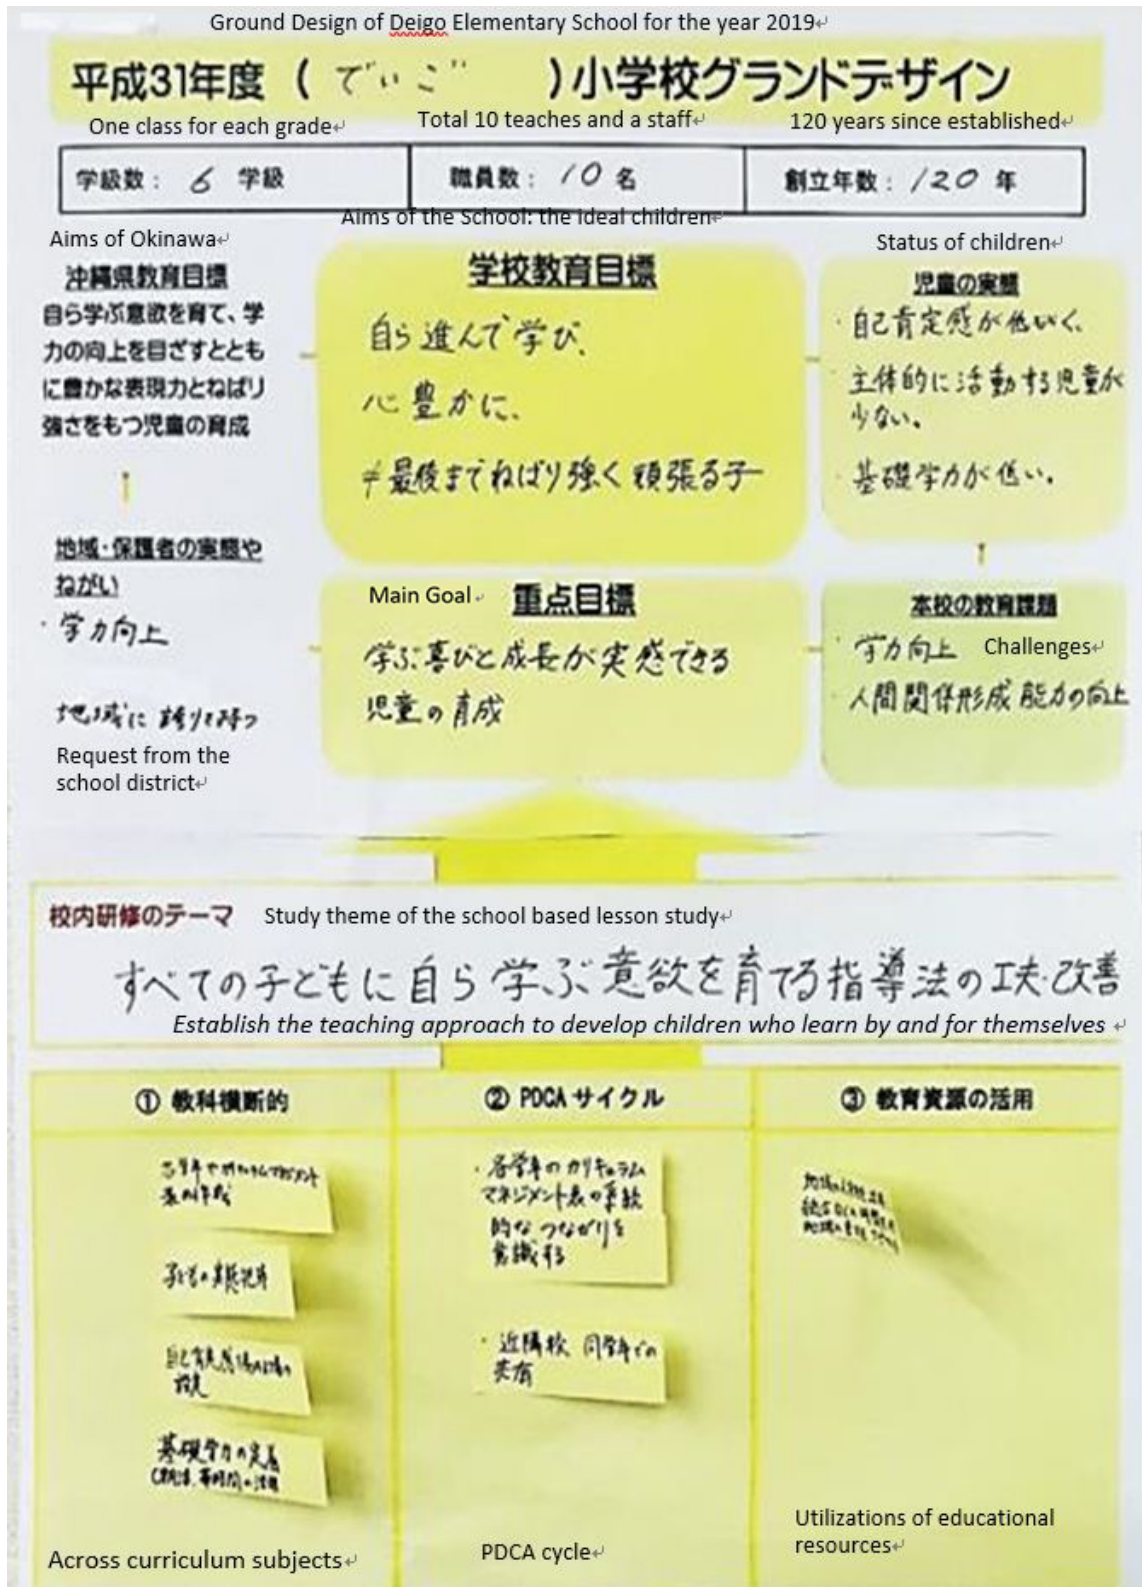 Ground Design of Deigo Elementary School for the year 2019
平成31年度 ( でいご )小学校グランドデザイン
One class for each grade
Total 10 teaches and a staff
120 years since established
学級数: 6 学級
職員数: 10 名
創立年数: 120 年
Aims of Okinawa
沖縄県教育目標
自ら学ぶ意欲を育て、学
力の向上を目ざすととも
に豊かな表現力とねばり
強さをもつ児童の育成
地域・保護者の実態や
ねがい
・学力向上
地域に誇りを持つ
Request from the
school district
Aims of the School: the ideal children
学校教育目標
自ら進んで学び、
心豊かに、
最後までねばり強く頑張る子
Main Goal
重点目標
学ぶ喜びと成長が実感できる
児童の育成
Status of children
児童の実態
・自己肯定感が低く、
主体的に活動する児童が
少ない。
・基礎学力が低い。
本校の教育課題
・学力向上
Challenges
・人間関係形成能力の向上
校内研修のテーマ
Study theme of the school based lesson study
すべての子どもに自ら学ぶ意欲を育てる指導法の工夫・改善
Establish the teaching approach to develop children who learn by and for themselves
① 教科横断的
子どもの実態把握
基礎学力の定着
Across curriculum subjects
② PDCAサイクル
・各学年のカリキュラム
マネジメント表の系統
的なつながりを
意識する
・近隣校、同学年での
共有
PDCA cycle
③ 教育資源の活用
Utilizations of educational
resources